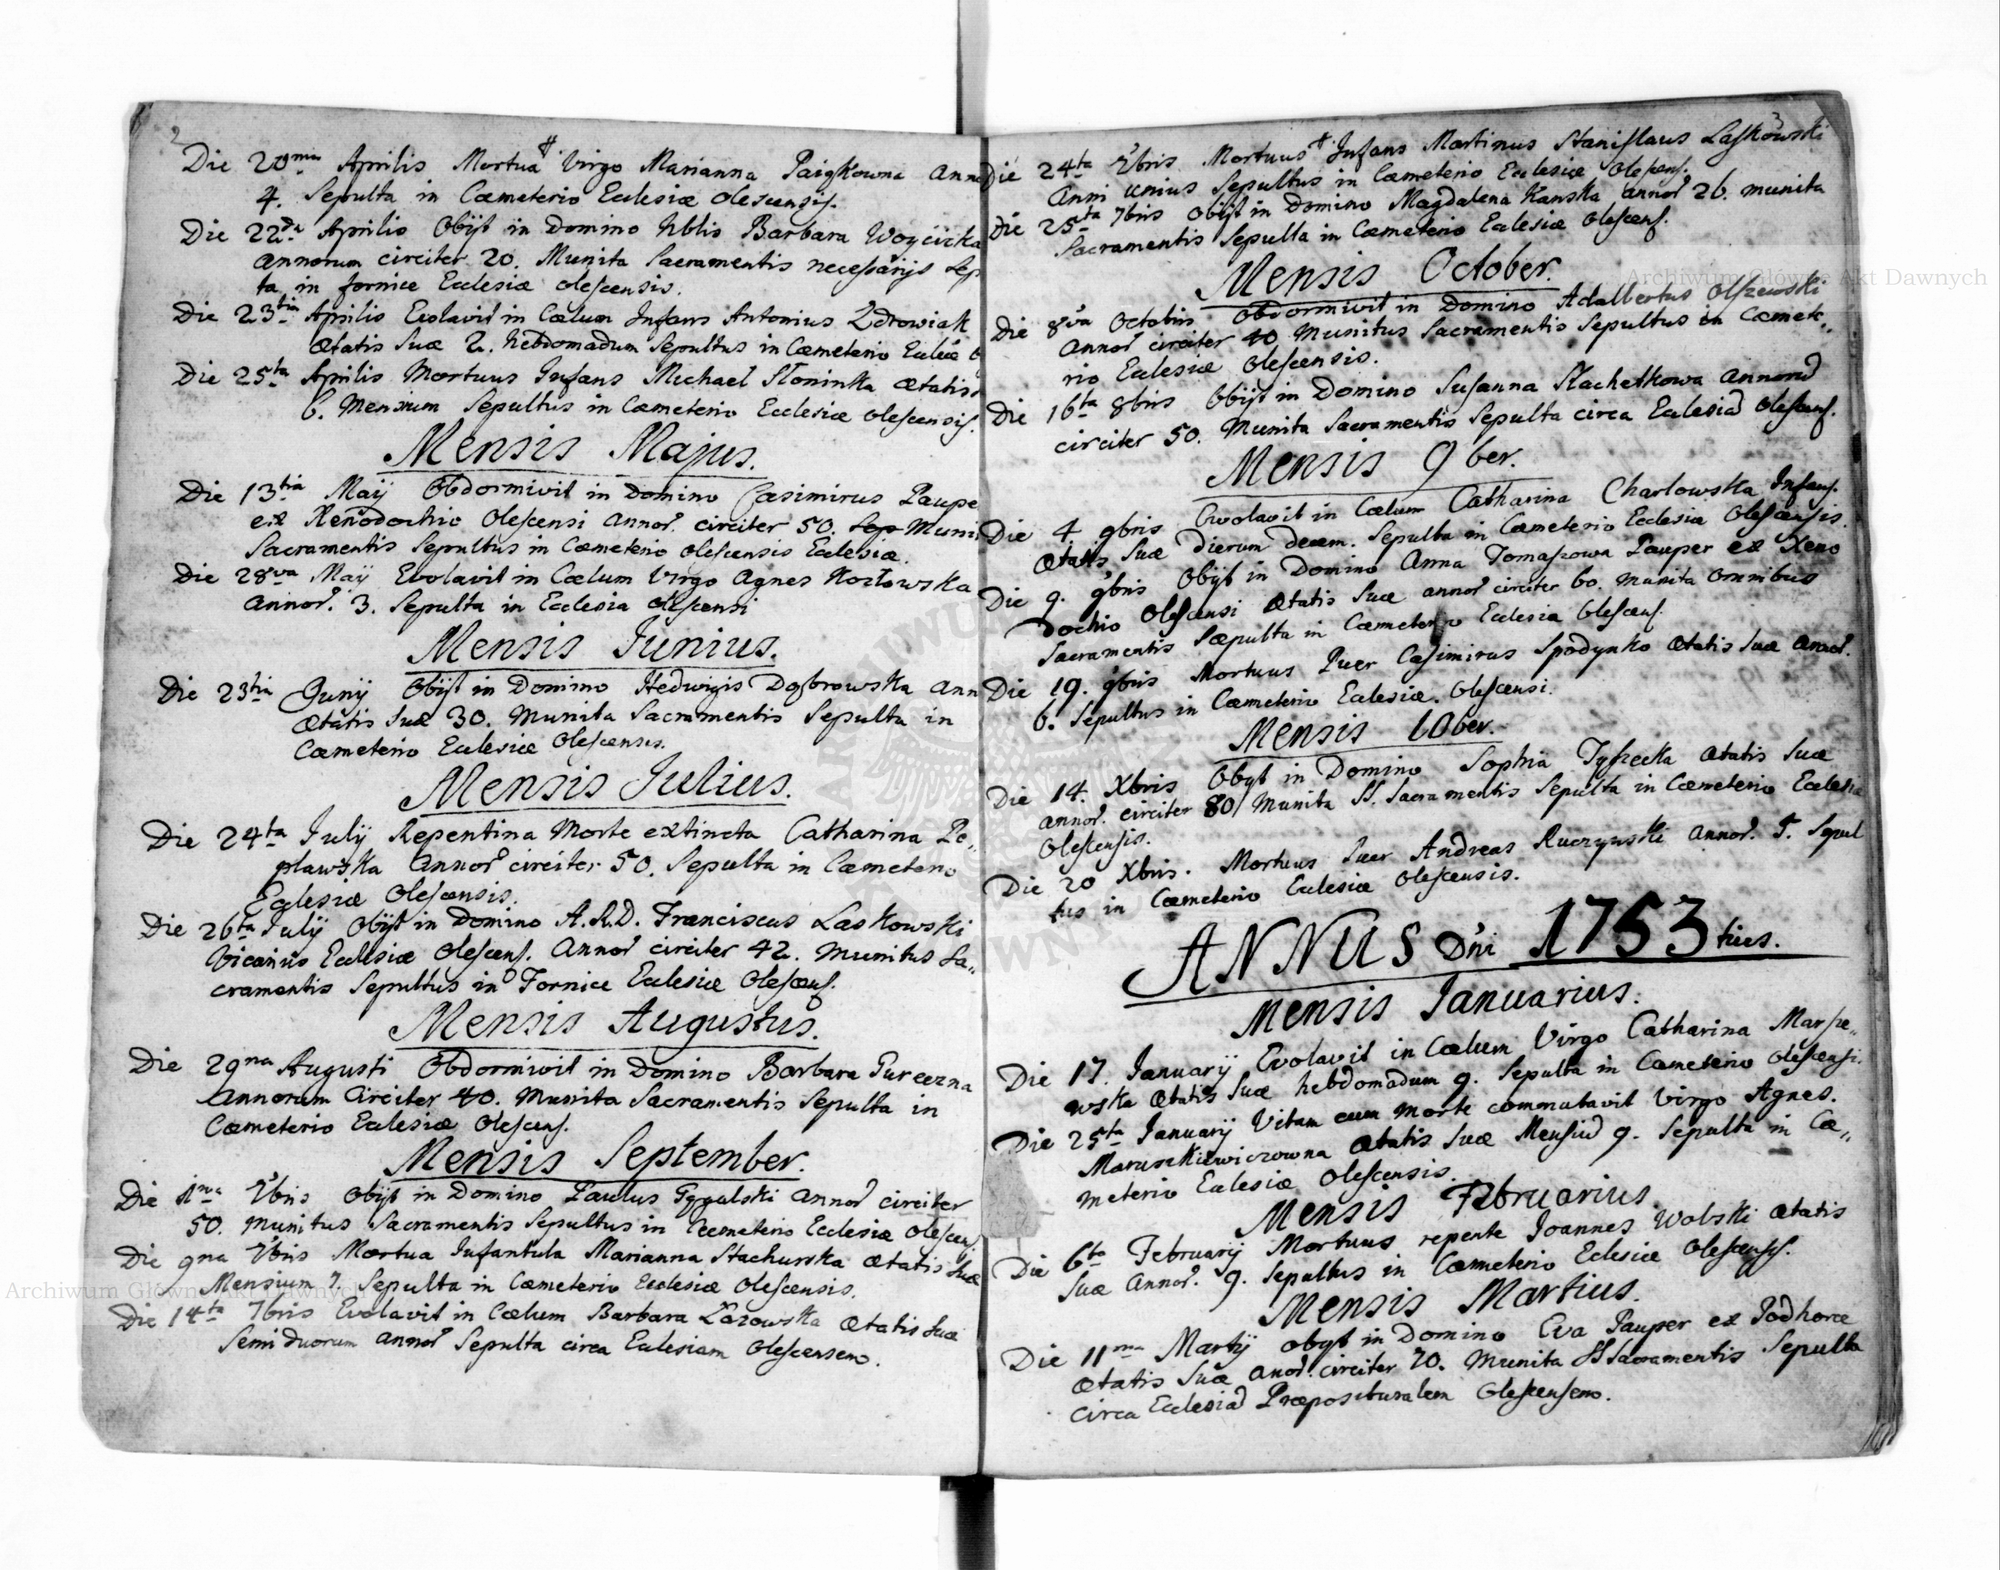 2
Die 20ma Aprilis Mortua # Virgo Marianna Paigkowna Ann
4. Sepulta in Cæmeterio Ecclesiæ Olescensis.
Die 22da Aprilis Obijt in Domino Nblis Barbara Woycicka
Annorum circiter 20. Munita Sacramentis necessarijs Sep
ta in fornice Ecclesiæ Olescensis.
Die 23tia Aprilis Evolavit in Cælum Infans Antonius Zdrowiak
Ætatis Suæ 2. hebdomadum Sepultus in Cæmeterio Eccliæ O
Die 25ta Aprilis Mortuus Infans Michael Słoninka Ætatis
6. Mensium Sepultus in Cæmeterio Ecclesiæ Olescensis.
Mensis Majus.
Die 13tia Maij Obdormivit in Domino Casimirus Paupe
ex Xenodochio Olescensi Annor. circiter 50. Sep Muni
Sacramentis Sepultus in Cæmeterio Olescensis Ecclesiæ.
Die 28va Maij Evolavit in Cælum Virgo Agnes Kozłowska
Annor. 3. Sepulta in Ecclesia Olescensi
Mensis Junius.
Die 23tia Junij Obijt in Domino Hedwigis Dąbrowska Ann
Ætatis Suæ 30. Munita Sacramentis Sepulta in
Cæmeterio Ecclesiæ Olescensis.
Mensis Julius.
Die 24ta July Repentina Morte extincta Catharina Po„
pławska Annor circiter 50. Sepulta in Cæmeterio
Ecclesiæ Olescensis.
Die 26ta July Obijt in Domino A.R.D. Franciscus Laskowski
Vicarius Ecclesiæ Olescens. Annor circiter 42. Munitus Sa„
cramentis Sepultus in Fornice Ecclesiæ Olescens.
Mensis Augustus.
Die 29na Augusti Obdormivit in Domino Barbara Gurcezna
Annorum Circiter 40. Munita Sacramentis Sepulta in
Cæmeterio Ecclesiæ Olescens.
Mensis September.
Die 1ma 7bris Obijt in Domino Paulus Gygulski Annor circiter
50. Munitus Sacramentis Sepultus in Cæmeterio Ecclesiæ Olescens
Die 9na 7bris Mortua Infantula Marianna Stachurska Ætatis Suæ
Mensium 7. Sepulta in Cæmeterio Ecclesiæ Olescensis.
Die 14ta 7bris Evolavit in Cælum Barbara Łazowska Ætatis Suæ
Semi duorum Annor Sepulta circa Ecclesiam Olescensem.
3
Die 24ta 7bris Mortuus # Infans Martinus Stanislaus Laskowski
Anni unius Sepultus in Cæmeterio Ecclesiæ Olescens.
Die 25ta 7bris Obijt in Domino Magdalena Kanska Annor 26. munita
Sacramentis Sepulta in Cæmeterio Ecclesiæ Olescens.
Mensis October.
Die 8va Octobris Obdormivit in Domino Adalbertus Olszewski
Annor circiter 40 Munitus Sacramentis Sepultus in Cæmete„
rio Ecclesiæ Olescensis.
Die 16ta 8bris Obijt in Domino Susanna Slachetkowa Annorū
circiter 50. Munita Sacramentis Sepulta circa Ecclesiā Olescens.
Mensis 9ber.
Die 4 9bris Evolavit in Cælum Catharina Charlowska Infans.
Ætatis Suæ Dierum Decem. Sepulta in Cæmeterio Ecclesiæ Olescensis.
Die 9. 9bris Obijt in Domino Anna Tomaszowa Pauper ex Xeno
dochio Olescensi Ætatis Suæ Annor circiter 60. Munita Omnibus
Sacramentis Sæpulta in Cæmeterio Ecclesia Olescens.
Die 19. 9bris Mortuus Puer Casimirus Spodynko Ætatis Suæ Annor.
6. Sepultus in Cæmeterio Ecclesiæ. Olescensi.
Mensis 10ber.
Die 14. Xbris Obijt in Domino Sophia Tyszecka Ætatis Suæ
Annor. circiter 80 Munita SS. Sacramentis Sepulta in Cæmeterio Ecclesiæ
Olescensis.
Die 20 Xbris. Mortuus Puer Andreas Ruczynski Annor. 5. Sepul
tus in Cæmeterio Ecclesiæ Olescensis.
ANNUS Dni 1753 tius.
Mensis Ianuarius.
Die 17. Ianuarij Evolavit in Cælum Virgo Catharina Marsze„
wska Ætatis Suæ hebdomadum 9. Sepulta in Cæmeterio Olescensi.
Die 25ta Ianuarij Vitam cum Morte commutavit Virgo Agnes.
Maruszkiewiczowna Ætatis Suæ Mensiū 9. Sepulta in Cæ„
meterio Ecclesiæ Olescensis.
Mensis Februarius.
Die 6ta Februarij Mortuus repente Joannes Wolski Ætatis
Suæ Annor. 9. Sepultus in Cæmeterio Eclesiæ Olescensis.
Mensis Martius.
Die 11ma Martij Obijt in Domino Eva Pauper ex Podhorce
Ætatis Suæ Anor. circiter 70. Munita SS Sacramentis Sepulta
Circa Ecclesiā Præposituralem Olescensem.
Archiwum Główne Akt Dawnych
Archiwum Główne Akt Dawnych